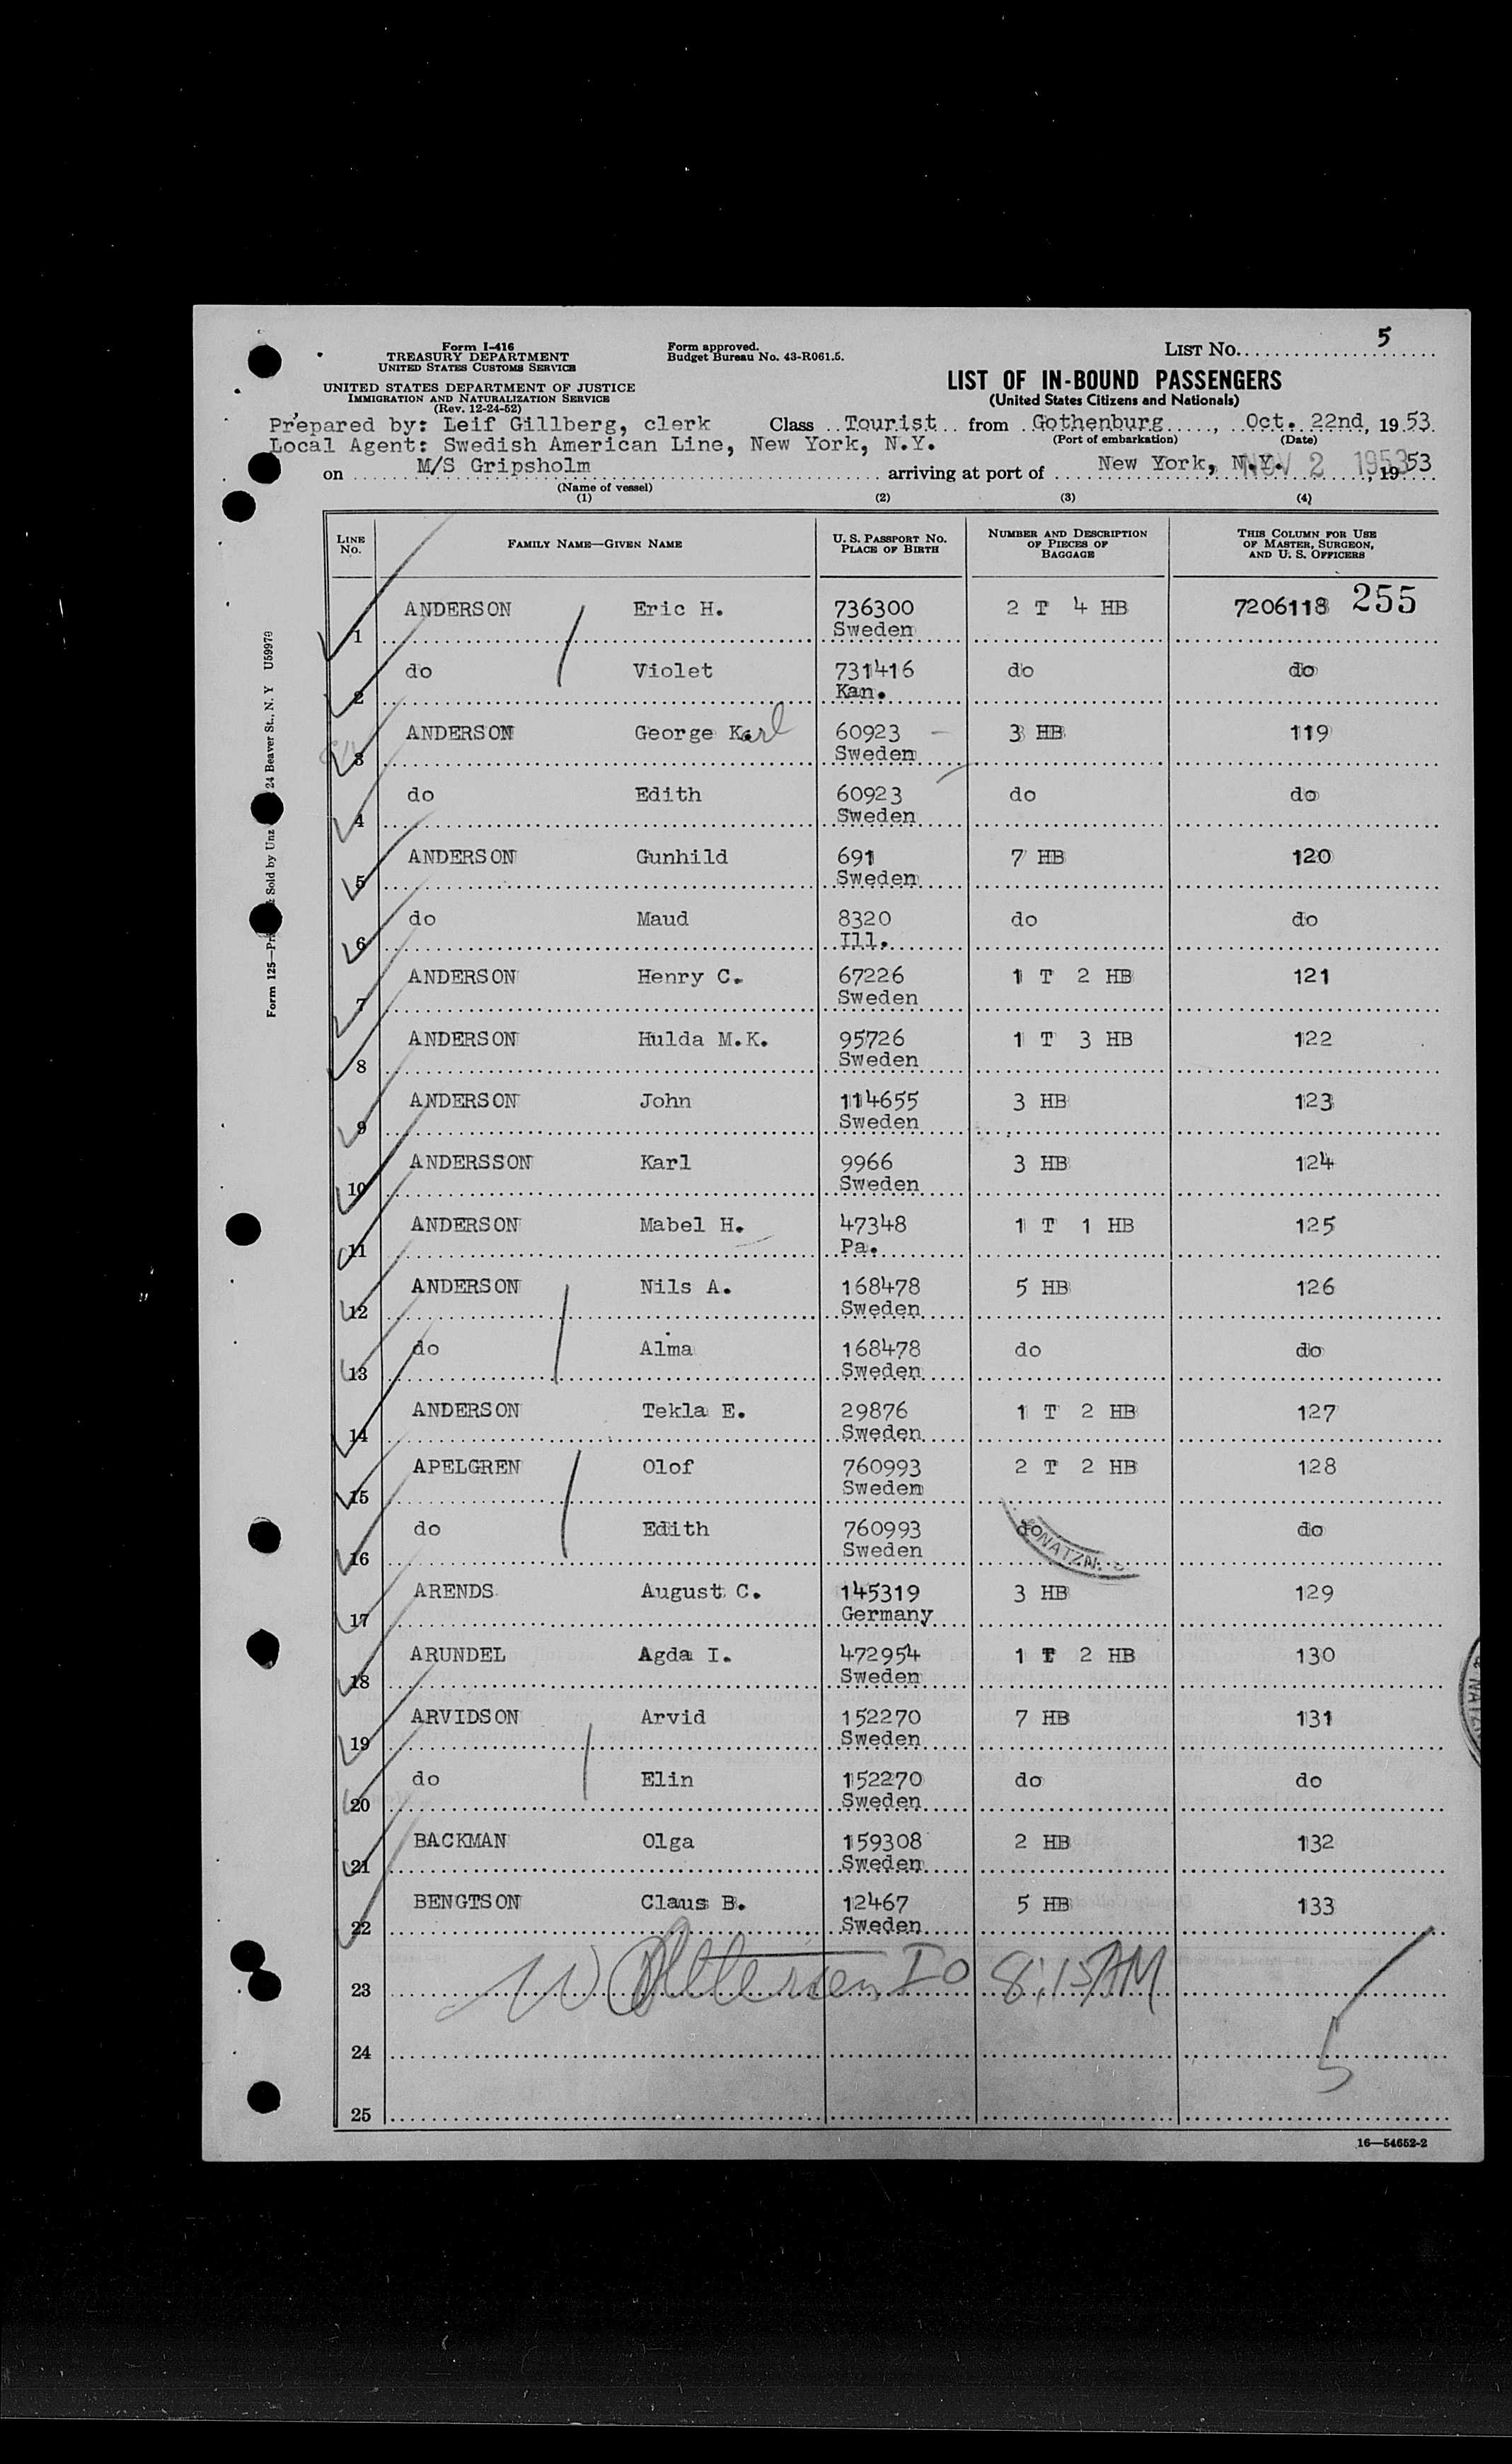 5
Form I-416
TREASURY DEPARTMENT
UNITED STATES CUSTOMS SERVICE
Form approved.
Budget Bureau No. 43-R061.5.
LIST No.
UNITED STATES DEPARTMENT OF JUSTICE
IMMIGRATION AND NATURALIZATION SERVICE
(Rev. 12-24-52)
LIST OF IN-BOUND PASSENGERS
(United States Citizens and Nationals)
Prepared by: Leif Gillberg, clerk Class Tourist from Gothenburg, Oct. 22nd, 1953
(Port of embarkation) (Date)
Local Agent: Swedish American Line, New York, N.Y.
on M/S Gripsholm arriving at port of New York, N.Y. NOV 2 1953, 1953
(Name of vessel)
(1) (2) (3) (4)
LINE No. FAMILY NAME—GIVEN NAME U. S. PASSPORT NO. PLACE OF BIRTH NUMBER AND DESCRIPTION OF PIECES OF BAGGAGE THIS COLUMN FOR USE OF MASTER, SURGEON, AND U. S. OFFICERS
255
1 ANDERSON Eric H. 736300 Sweden 2 T 4 HB 7206118
2 do Violet 731416 Kan. do do
3 ANDERSON George Karl 60923 Sweden 3 HB 119
4 do Edith 60923 Sweden do do
5 ANDERSON Gunhild 691 Sweden 7 HB 120
6 do Maud 8320 Ill. do do
7 ANDERSON Henry C. 67226 Sweden 1 T 2 HB 121
8 ANDERSON Hulda M.K. 95726 Sweden 1 T 3 HB 122
9 ANDERSON John 114655 Sweden 3 HB 123
10 ANDERSSON Karl 9966 Sweden 3 HB 124
11 ANDERSON Mabel H. 47348 Pa. 1 T 1 HB 125
12 ANDERSON Nils A. 168478 Sweden 5 HB 126
13 do Alma 168478 Sweden do do
14 ANDERSON Tekla E. 29876 Sweden 1 T 2 HB 127
15 APELGREN Olof 760993 Sweden 2 T 2 HB 128
16 do Edith 760993 Sweden do do
17 ARENDS August C. 145319 Germany 3 HB 129
18 ARUNDEL Agda I. 472954 Sweden 1 T 2 HB 130
19 ARVIDSON Arvid 152270 Sweden 7 HB 131
20 do Elin 152270 Sweden do do
21 BACKMAN Olga 159308 Sweden 2 HB 132
22 BENGTSON Claus B. 12467 Sweden 5 HB 133
23 IO 8:15 AM
24 5
25
16—54652-2
Form 125— Sold by Unz 24 Beaver St., N. Y U59970
NATZN.